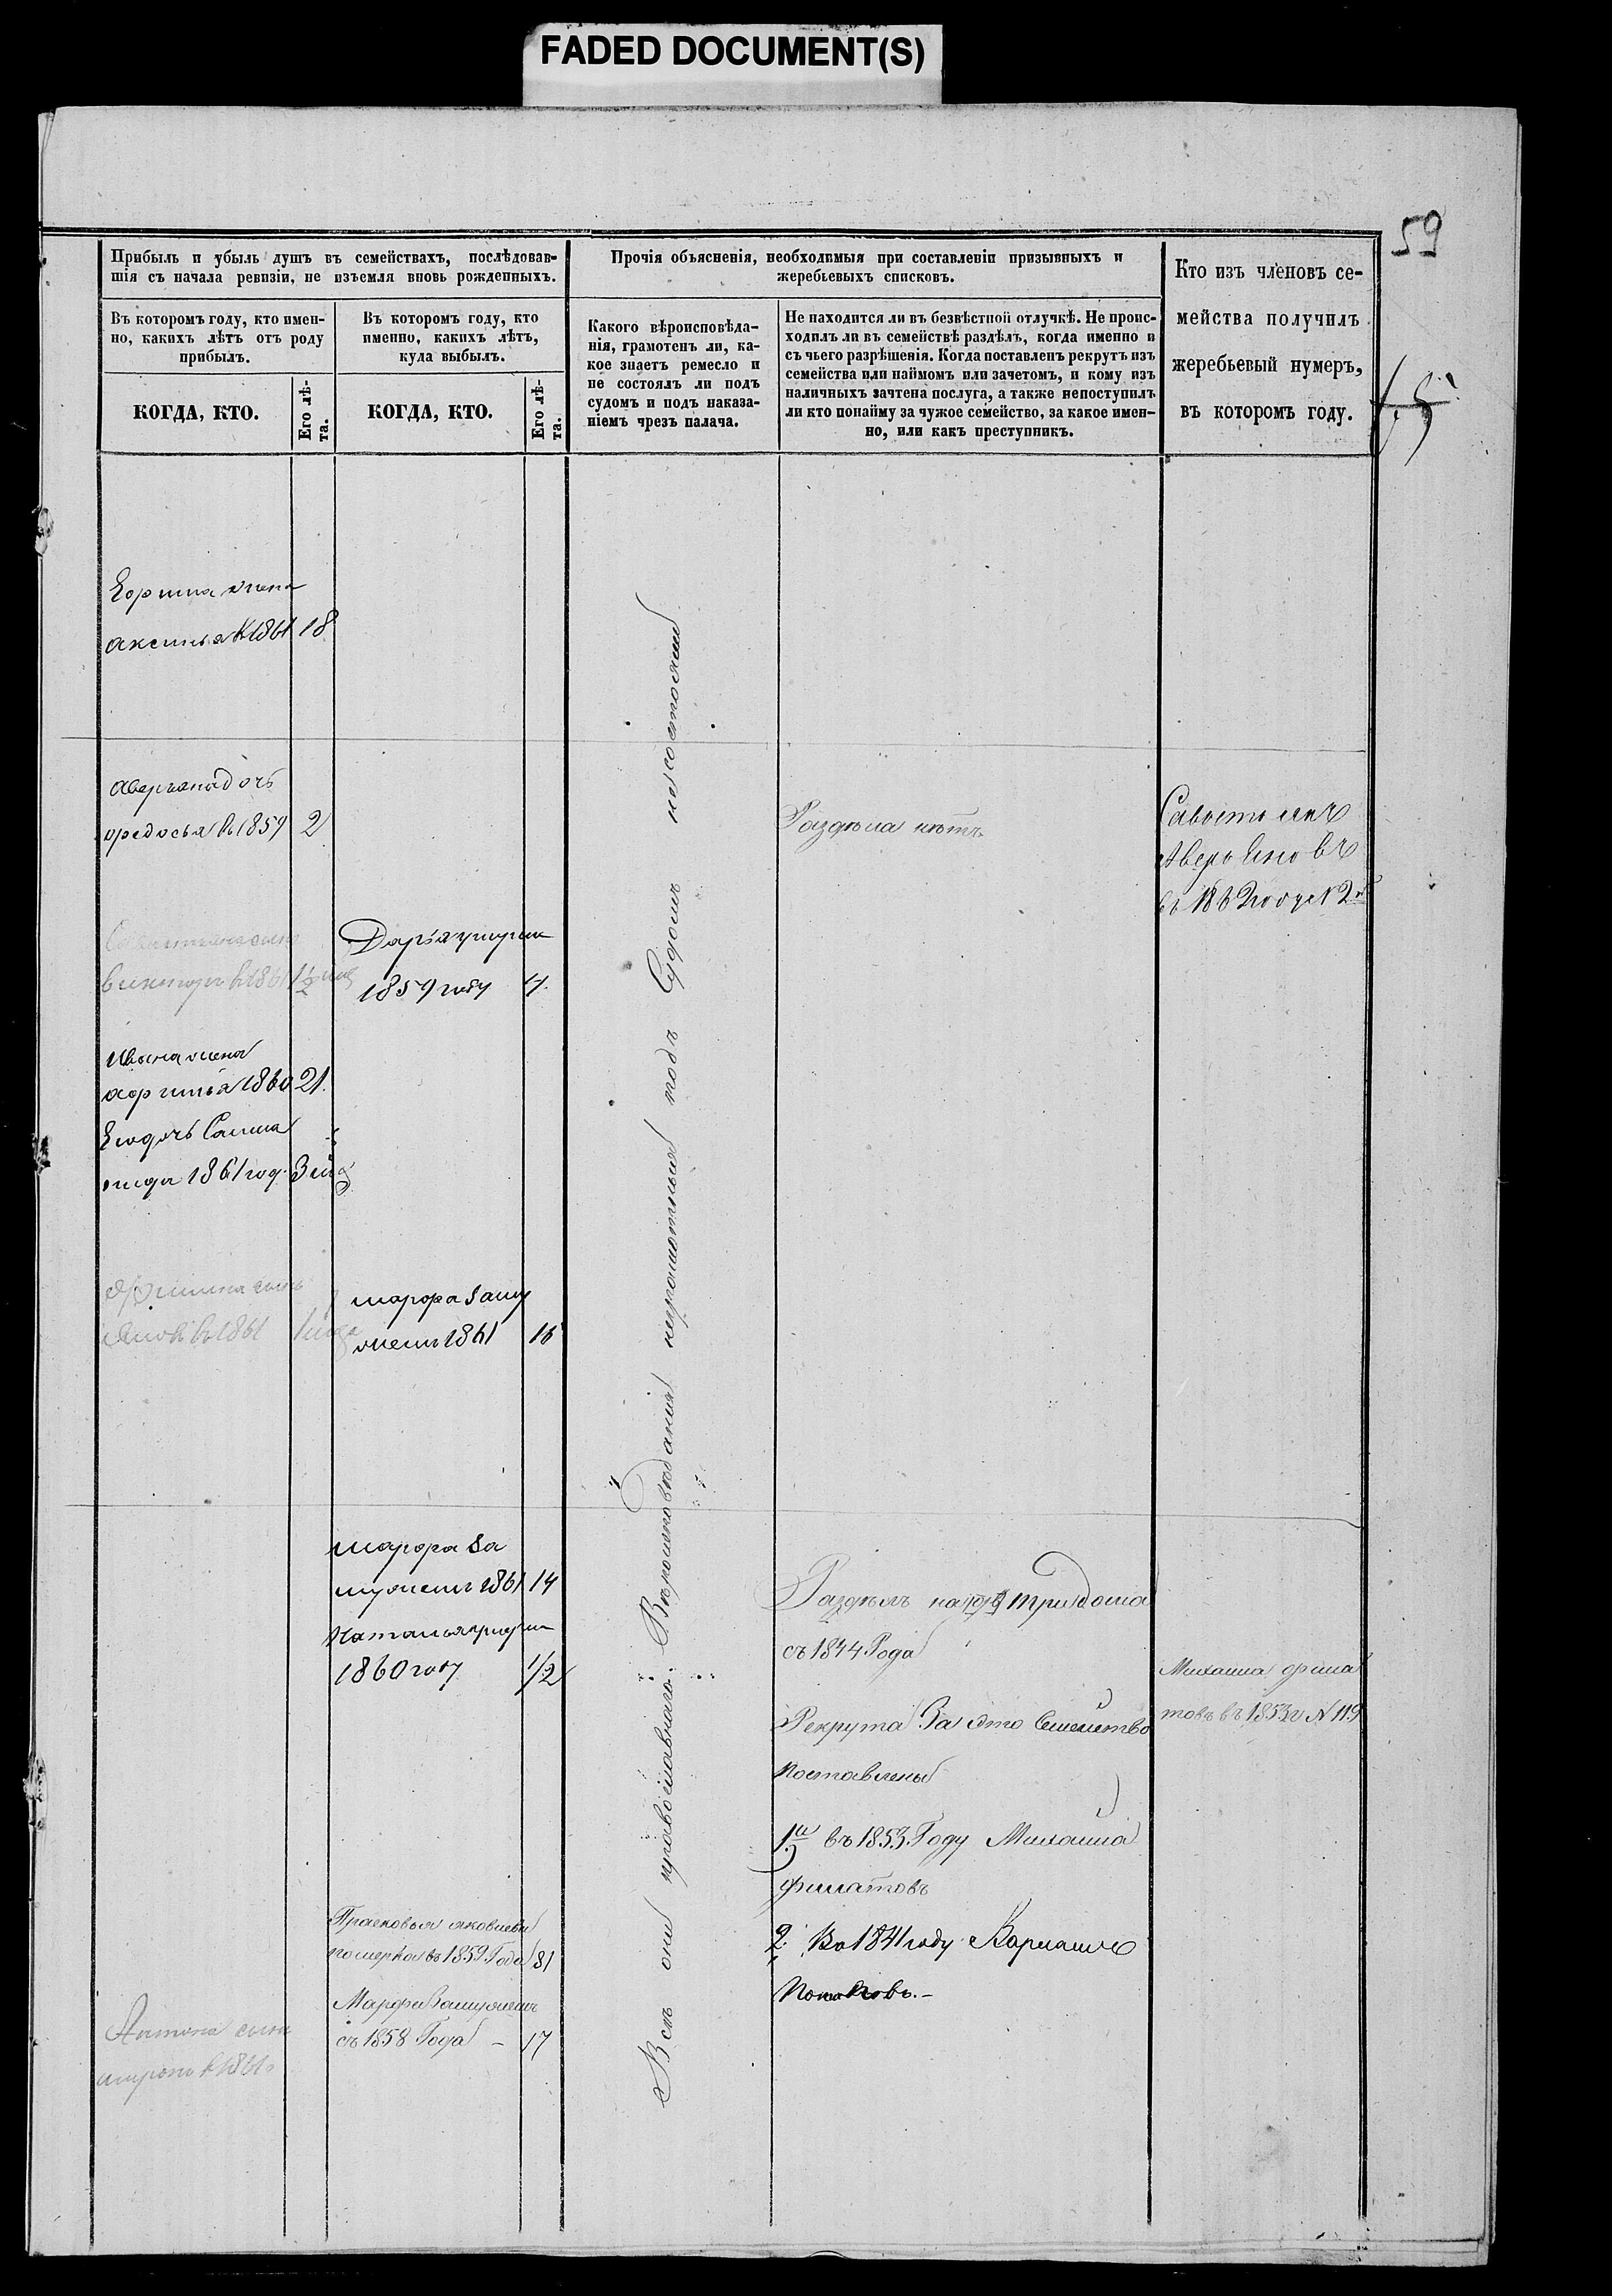 FADED DOCUMENT(S)
59
Прибыль и убыль душъ въ семействахъ, послѣдовав-
шія съ начала ревизіи, не изъемля вновь рожденныхъ.
Въ которомъ году, кто имен-
но, какихъ лѣтъ отъ роду
прибылъ.
КОГДА, КТО.
Его лѣ-
та.
Въ которомъ году, кто
именно, какихъ лѣтъ,
куда выбылъ.
КОГДА, КТО.
Его лѣ-
та.
Прочія объясненія, необходимыя при составленіи призывныхъ и
жеребьевыхъ списковъ.
Какого вѣроисповѣда-
нія, грамотенъ ли, ка-
кое знаетъ ремесло и
не состоялъ ли подъ
судомъ и подъ наказа-
ніемъ чрезъ палача.
Не находится ли въ безвѣстной отлучкѣ. Не проис-
ходилъ ли въ семействѣ раздѣлъ, когда именно и
съ чьего разрѣшенія. Когда поставленъ рекрутъ изъ
семейства или наймомъ или зачетомъ, и кому изъ
наличныхъ зачтена послуга, а также непоступилъ
ли кто понайму за чужое семейство, за какое имен-
но, или какъ преступникъ.
Кто изъ членовъ се-
мейства получилъ
жеребьевый нумеръ,
въ которомъ году.
жена
аксинья 1861 18
аверьяна дочь
федосья въ 1859 2
сынъ
викторъ в 1861
Ивана жена
афимья 1860 21
Его дочь Соломо
нида 1861 год. 3
сынъ
1861
Антона сынъ
миронъ 1861
Дарья умерла
1859 году 4
марфа заму
жемъ 1861 16
марфа за
мужемъ 1861 14
Наталья умерла
1860 году 1/2
Прасковья яковлева
померла въ 1859 Года 81
Марфа Замужемъ
съ 1858 Года – 17
Всѣ они православнаго Вѣроисповѣдания неграмотныя подъ Судомъ не состояли
Раздѣла нѣтъ
Раздѣлъ на три дома
съ 1844 Года
Рекрута За это Семейство
поставлены
1й въ 1853 Году Михаила
филатовъ
2. Во 1841 году
Савостьянъ
Аверьяновъ
въ году N 2й
Михаила фила
товъ въ 1853 г N 119